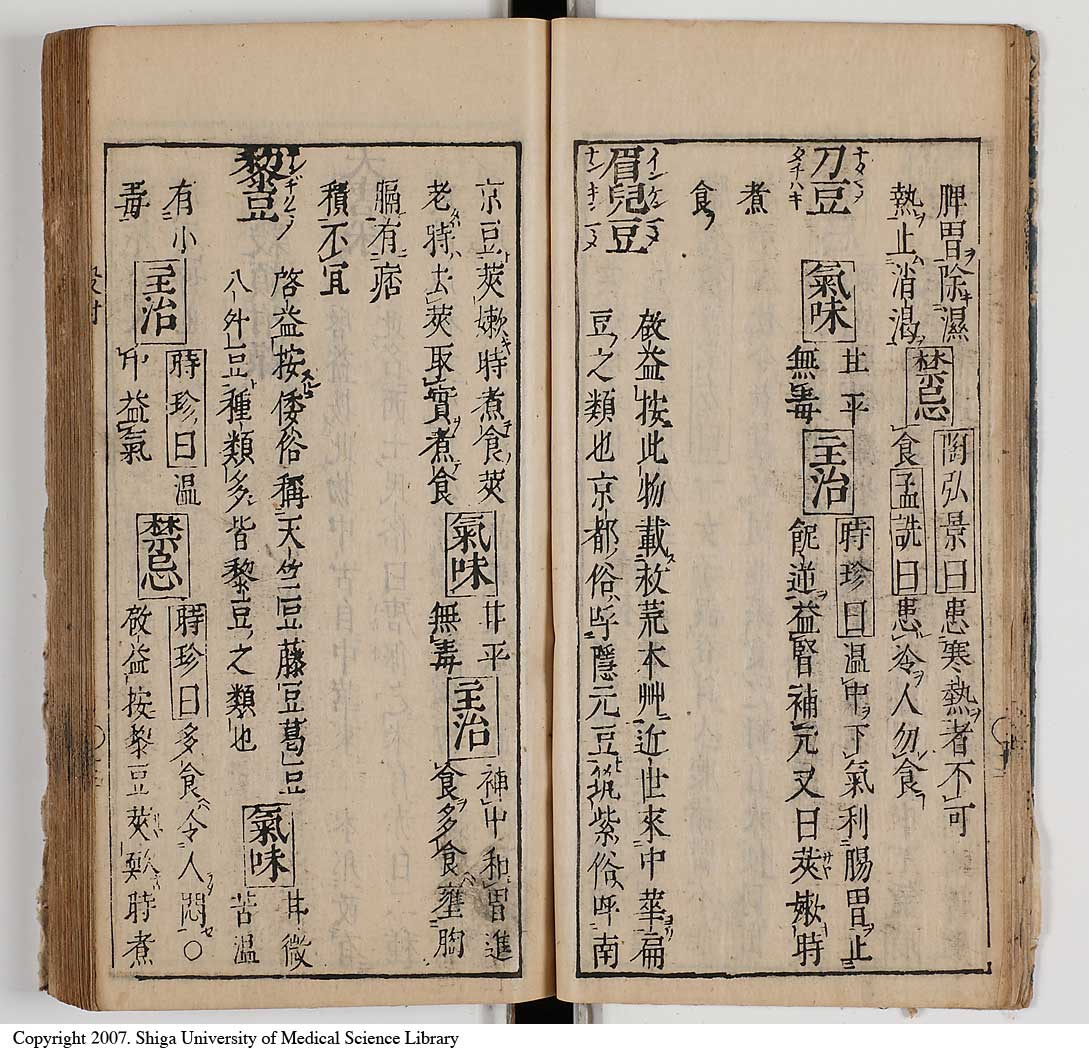 脾胃除濕
熱止消渇
禁忌
陶弘景曰患寒熱者不可
食孟詵曰患冷人勿食
刀豆
氣味
甘平
無毒
主治
時珍曰溫中下氣利腸胃止
逆益腎補元又曰莢嫩時
煮
食
眉兒豆
啓益按此物載救荒本艸近世來中華扁
豆之類也京都俗呼隱元豆筑紫俗呼南
京豆莢嫩時煮食莢
老時去莢取實煮食
氣味
甘平
無毒
主治
補中和胃進
食多食壅胸
膈有痞
積不宜
黎豆
啓益按倭俗稱天竺豆藤豆葛豆
八升豆種類多皆黎豆之類也
氣味
甘微
苦温
有小
毒
主治
時珍曰温
中益氣
禁忌
時珍曰多食令人悶○
啓益按黎豆莢嫩時煮
Copyright 2007. Shiga University of Medical Science Library